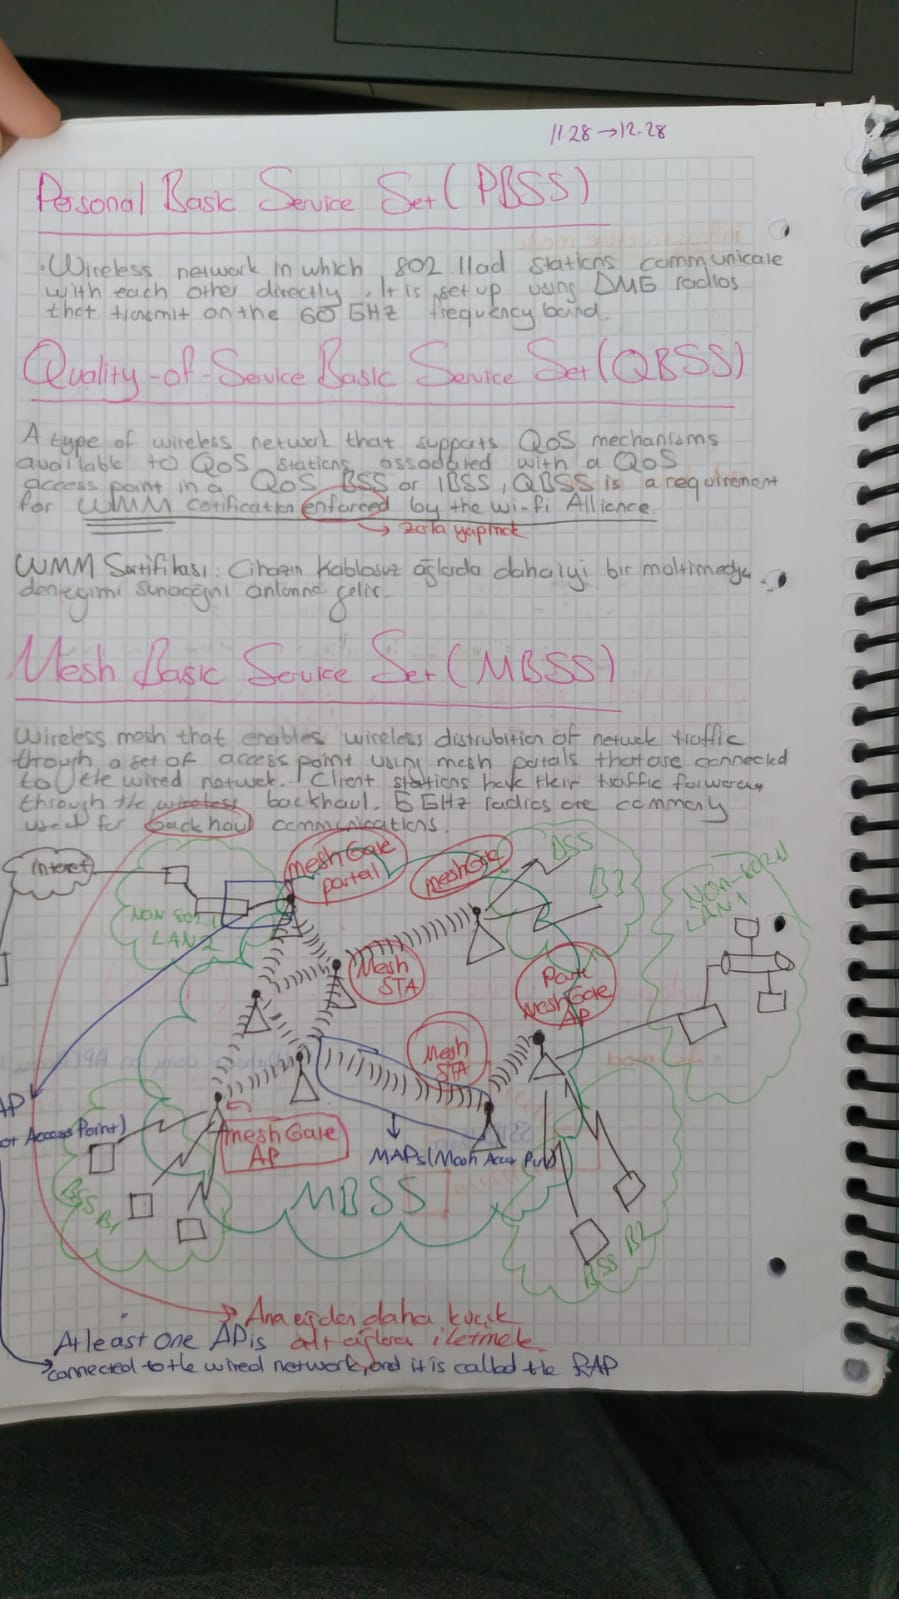 11.28 → 12.28
Personal Basic Service Set (PBSS)
. Wireless network in which 802 11ad stations communicate
with each other directly. It is set up using DMG radios
that transmit on the 60 GHz frequency band.
Quality-of-Service Basic Service Set (QBSS)
A type of wireless network that supports QoS mechanisms
available to QoS stations associated with a QoS
access point in a QoS BSS or IBSS, QBSS is a requirement
for WMM certification enforced by the wi-fi Allience.
→ zorla yapmak
WMM Sertifikası: Cihazın kablosuz ağlarda daha iyi bir moltimedya
deneyimi sunacağını anlamına gelir.
Mesh Basic Service Set (MBSS)
Wireless mesh that enables wireless distrubition of network traffic
through a set of access point using mesh portals that are connected
to the wired network. Client stations have their traffic forwarded
through the wireless backhaul. 5 GHz radios are commonly
used for backhaul communications.
Internet
Mesh Gate
portal
mesh Gate
BSS
B3
NON 802.11
LAN2
NON-802.11
LAN1
Mesh
STA
Mesh Gate
AP
Mesh
STA
AP
Access Point)
mesh Gate
AP
MAPs (Mesh Access Point)
BSS B1
MBSS
BSS B2
→ Ana ağdan daha küçük
At least one AP is alt ağlara iletmek.
→ connected to the wired network, and it is called the RAP